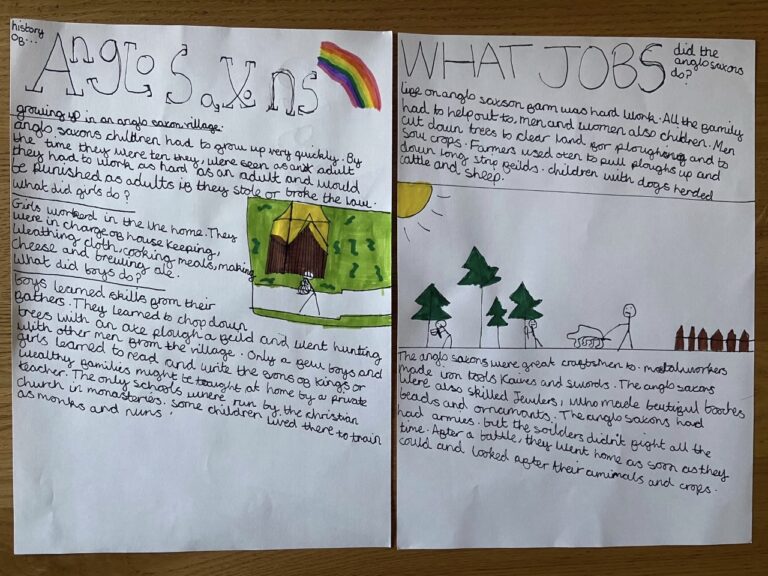 history
of...
Anglo Saxons
growing up in an anglo saxon village.
anglo saxons children had to grow up very quickly. By
the time they were ten they, were seen as an adult
they had to work as hard as an adult and would
be punished as adults if they stole or broke the law.
What did girls do?
Girls workerd in the the home. They
were in charge of house keeping,
weathing cloth, cooking meals, making
cheese and brewing ale.
What did boys do?
boys learned skills from their
fathers. They learned to chop down
trees with an axe plough a feild and went hunting
with other men from the village. Only a few boys and
girls learned to read and write the sons of kings or
wealthy families might be taught at home by a private
teacher. The only schools where run by the christian
church in monasteries. some children lived there to train
as monks and nuns.
WHAT JOBS did the
anglo saxons
do?
life on anglo saxson farm was hard work. All the family
had to help out to, men and women also children. Men
cut down trees to clear land for ploughing and to
sow crops. Farmers used oxen to pull ploughs up and
down long strip feilds. children with dogs herded
cattle and sheep.
The anglo saxons were great craftsmen to. metalworkers
made iron tools Kaives and swords. The anglo saxons
were also skilled Jewlers, who made beutiful booches
beads and ornamonts. The anglo saxons had
had armies. but the soilders didn't fight all the
time. After a battle, they went home as soon as they
could and looked after their amimals and crops.